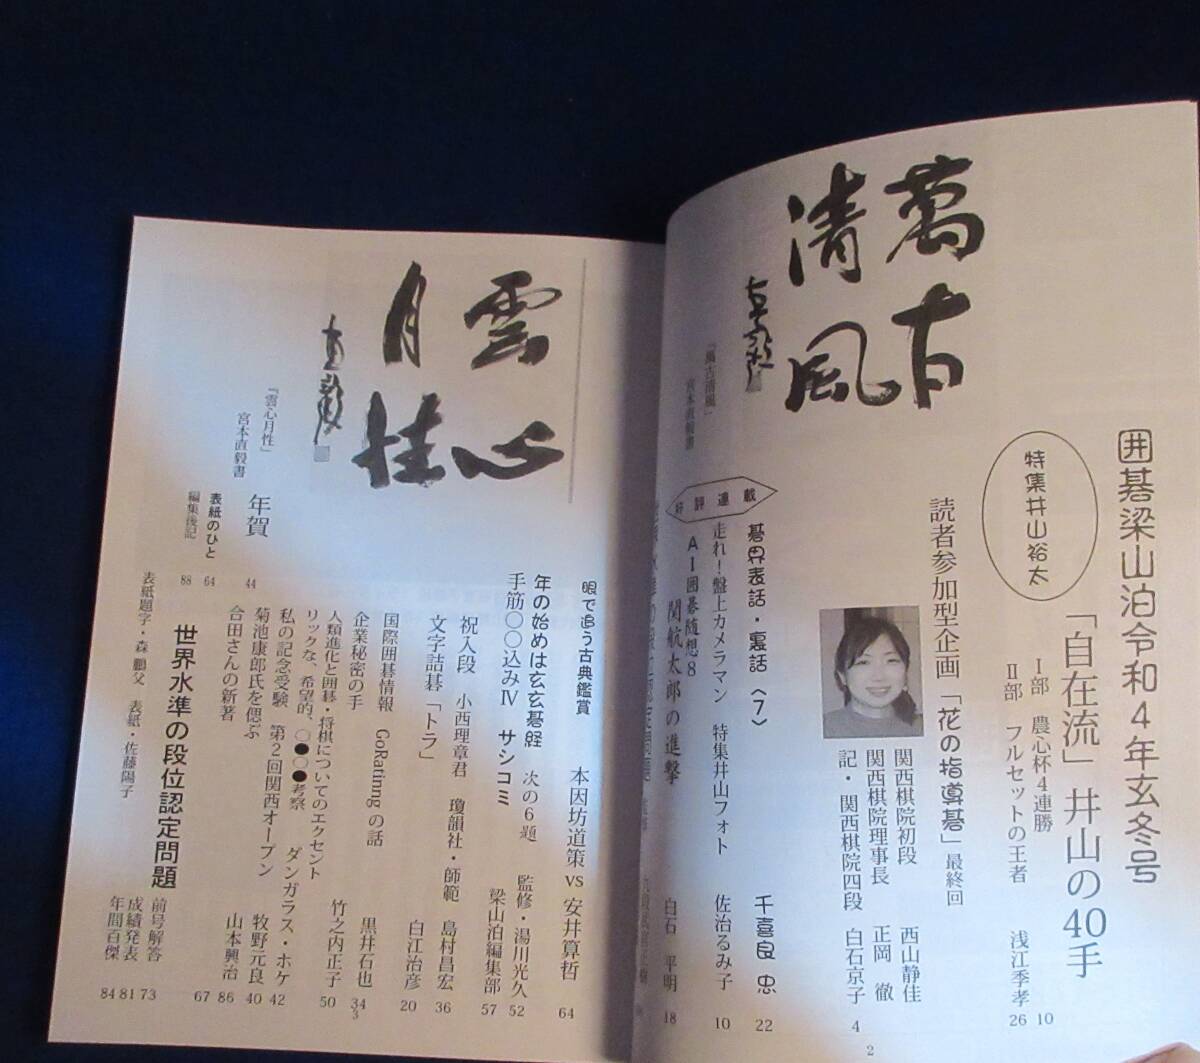 萬古
清風
「萬古清風」
宮本直毅書
囲碁梁山泊令和4年玄冬号
特集井山裕太
「自在流」井山の40手
Ⅰ部 農心杯4連勝 10
Ⅱ部 フルセットの王者 浅江季孝 26
読者参加型企画「花の指導碁」最終回
関西棋院初段 西山静佳
関西棋院理事長 正岡 徹
記・関西棋院四段 白石京子 4
好評連載
碁界表話・裏話〈7〉 千喜良 忠 22
走れ!盤上カメラマン 特集井山フォト 佐治るみ子 10
AI囲碁随想8
関航太郎の進撃 白石 平明 18
2
雲心
月性
「雲心月性」
宮本直毅書
眼で追う古典鑑賞 本因坊道策vs安井算哲 64
年の始めは玄玄碁経 次の6題 監修・湯川光久 52
手筋○○込みⅣ サシコミ 梁山泊編集部 57
祝入段 小西理章君 瓊韻社・師範 島村昌宏 36
文字詰碁「トラ」 白江治彦 20
国際囲碁情報 GoRatinngの話
企業秘密の手 黒井石也 34
人類進化と囲碁・将棋についてのエクセント
リックな、希望的、○●○●考察 竹之内正子 50
私の記念受験 第2回関西オープン ダンガラス・ホケ 42
菊池康郎氏を偲ぶ 牧野元良 40
合田さんの新著 山本興治 86
67
年賀 44
表紙のひと 64
編集後記 88
世界水準の段位認定問題
前号解答 73
成績発表 81
年間百傑 84
表紙題字・森 鵬父 表紙・佐藤陽子
3